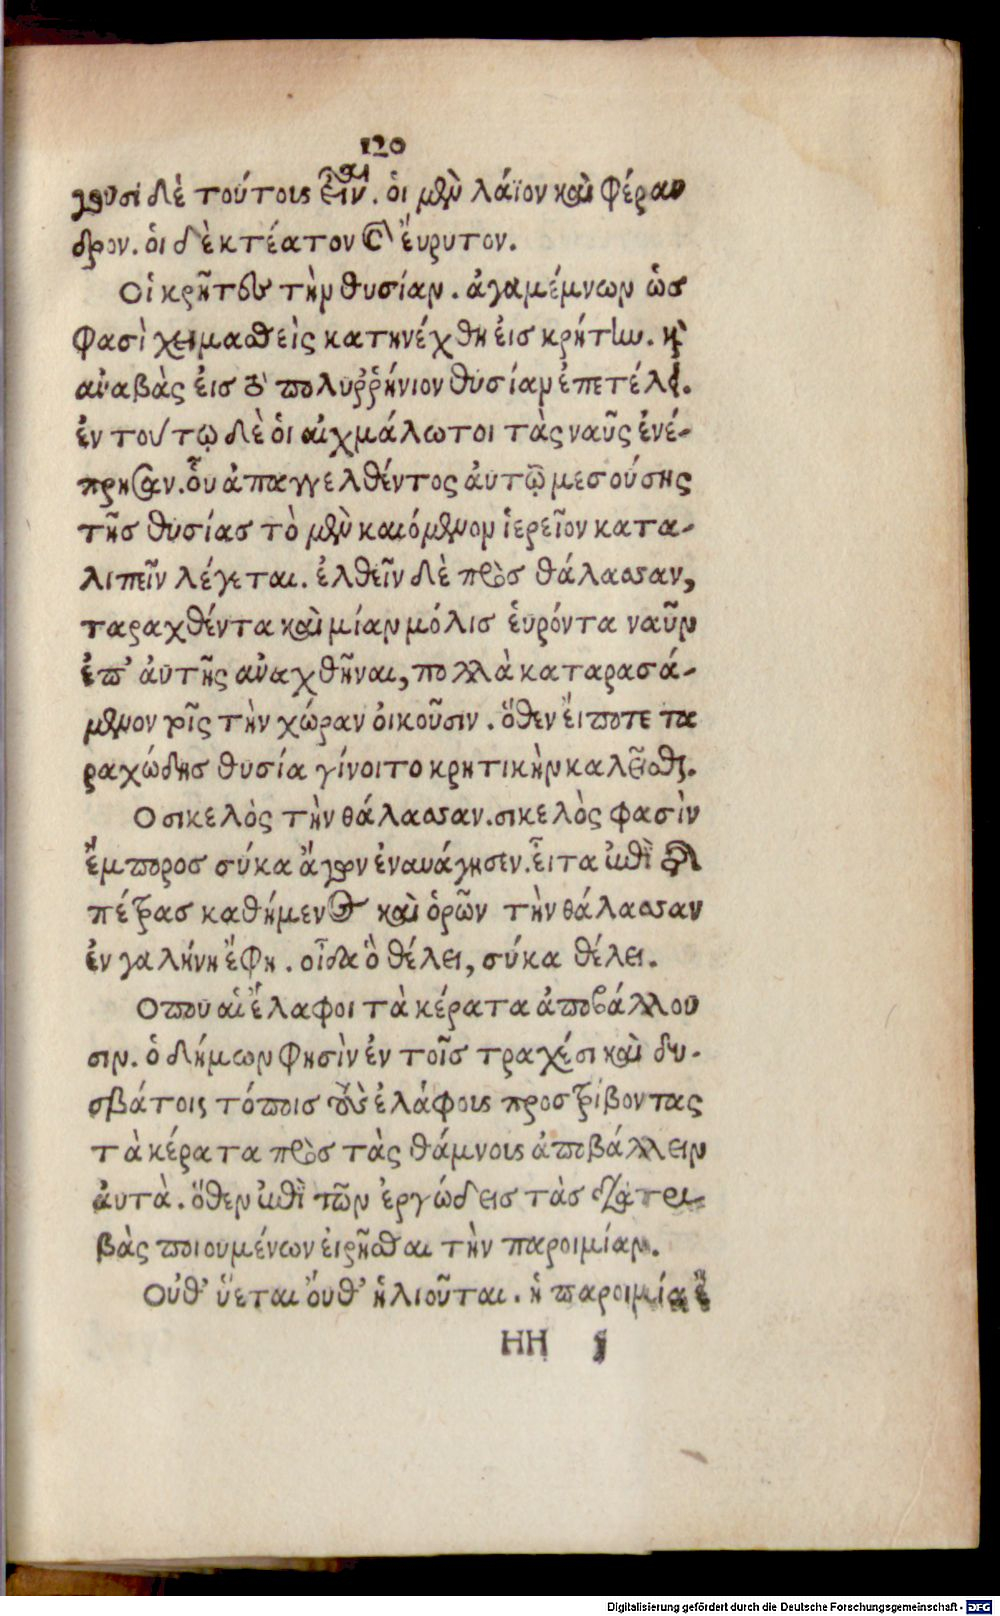 120
γουσι δὲ τούτους εἶναι. οἱ μὲν λάϊον καὶ φέραν
δρον. οἱ δ' ἐκτέατον καὶ ἔυρυτον.
Οἱ κρῆτες τὴν θυσίαν. ἀγαμέμνων ὡς
φασὶ χειμασθεὶς κατηνέχθη ἐις κρήτην. καὶ
ἀναβὰς ἐις τὸ πολυῤῥήνιον θυσίαν ἐπετέλει.
ἐν τούτῳ δὲ ὁι αἰχμάλωτοι τὰς ναῦς ἐνέ-
πρησαν. ὅυ ἀπαγγελθέντος ἀυτῷ μεσούσης
τῆς θυσίας τὸ μὲν καιόμενον ἱερεῖον κατα-
λιπεῖν λέγεται. ἐλθεῖν δὲ πρὸς θάλασσαν,
ταραχθέντα καὶ μίαν μόλις ἑυρόντα ναῦν
ἐπ' ἀυτῆς ἀναχθῆναι, πολλὰ καταρασά-
μενον τοῖς τὴν χώραν ὀικοῦσιν. ὅθεν ἔιποτε τα
ραχώδης θυσία γίνοιτο κρητικὴν καλεῖσθαι.
Ὁ σικελὸς τὴν θάλασσαν. σικελὸς φασὶν
ἔμπορος σύκα ἄγων ἐναυάγησεν. εἶτα ἐπὶ
πέτρας καθήμενος καὶ ὁρῶν τὴν θάλασσαν
ἐν γαλήνη ἔφη. οἶδα ὃ θέλει, σύκα θέλει.
Οπου αἱ ἔλαφοι τὰ κέρατα ἀποβάλλου
σιν. ὁ δήμων φησὶν ἐν τοῖς τραχέσι καὶ δυ-
σβάτοις τόποις τοὺς ἐλάφους προστρίβοντας
τὰ κέρατα πρὸς τὰς θάμνους ἀποβάλλειν
ἀυτὰ. ὅθεν ἐπὶ τῶν ἐργώδεις τὰς διατρι-
βὰς ποιουμένων ἐιρῆσθαι τὴν παροιμίαν.
Οὐθ' ὕεται ὄυθ' ἡλιοῦται. ἡ παροιμία ἔ
HH
Digitalisierung gefördert durch die Deutsche Forschungsgemeinschaft - DFG